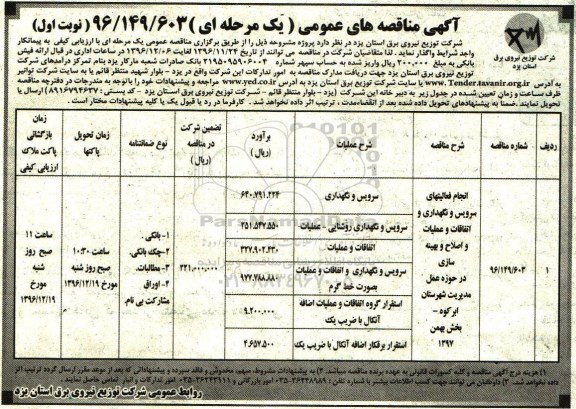 آگهی مناقصه های عمومی ( یک مرحله ای ) ۹۶/۱۴۹/۶۰۳ (نوبت اول)
شرکت توزیع نیروی برق
استان یزد
شرکت توزیع نیروی برق استان یزد در نظر دارد پروژه مشروحه ذیل را از طریق برگزاری مناقصه عمومی یک مرحله ای با ارزیابی کیفی به پیمانکار
واجد شرایط واگذار نماید. لذا متقاضیان شرکت در مناقصه می توانند از تاریخ ۱۳۹۶/۱۱/۲۴ لغایت ۱۳۹۶/۱۲/۰۶ در ساعات اداری در قبال ارائه فیش
بانکی به مبلغ ۲۰۰.۰۰۰ ریال واریز شده به حساب سپهر شماره ۲۱۹۵۰۹۵۹۰۶۰۰۴ بانک صادرات شعبه مارکار یزد بنام تمرکز درآمدهای شرکت
توزیع نیروی برق استان یزد جهت دریافت مدارک مناقصه به امور تدارکات این شرکت واقع در یزد – بلوار شهید منتظر قائم یا به سایت شرکت توانیر
به آدرس www.Tender.tavanir.org.ir یا سایت شرکت توزیع برق استان یزد به آدرس www.yed.co.ir مراجعه و پیشنهادات خود را باتوجه به مندرجات در دفترچه مناقصه
ظرف ساعت و زمان تعیین شده در جدول زیر به دبیر خانه این شرکت (یزد – بلوار منتظر قائم – شرکت توزیع نیروی برق استان یزد – کد پستی : ۸۹۱۶۷۹۴۶۳۷) ارسال یا
تحویل نمایند. ضمنا به پیشنهادهای تحویل داده شده بعد از انقضاء مدت ، ترتیب اثر داده نخواهد شد. کارفرما در رد یا قبول یک یا کلیه پیشنهادات مختار است .
ردیف شماره مناقصه شرح مناقصه شرح عملیات برآورد (ریال ) تضمین شرکت در مناقصه (ریال ) نوع ضمانتنامه زمان تحویل پاکتها زمان بازگشائی پاکت ملاک ارزیابی کیفی
۱ ۹۶/۱۴۹/۶۰۳
انجام فعالیتهای
سرویس و نگهداری و
اتفاقات و عملیات
و اصلاح و بهینه
سازی
در حوزه عمل
مدیریت شهرستان
ابرکوه –
بخش بهمن
۱۳۹۷
سرویس و نگهداری ۶۴۰.۷۹۱.۲۲۴
سرویس و نگهداری روشنایی - عملیات ۲۵۱.۵۴۷.۵۵۰
اتفاقات و عملیات ۳۳۷.۹۰۲.۶۳۰
سرویس و نگهداری و اتفاقات و عملیات بصورت خط گرم ۹۷۲.۷۸۸.۸۸۰
استقرار گروه اتفاقات و عملیات اضافه آنکال با ضریب یک ۹.۲۰۰.۰۰۰
استقرار برقکار اضافه آنکال با ضریب یک ۴.۶۵۷.۵۰۰
۲۲۱.۰۰۰.۰۰۰
۱- بانکی.
۲-چک بانکی.
۳- مطالبات.
۴- اوراق
مشارکت بی نام.
ساعت ۱۰:۳۰
صبح روز شنبه
مورخ ۱۳۹۶/۱۲/۱۹
ساعت ۱۱
صبح روز
شنبه
مورخ
۱۳۹۶/۱۲/۱۹
ParsNamadData
۱) هزینه درج آگهی مناقصه و کلیه کسورات قانونی به عهده برنده مناقصه میباشد. ۲) به پیشنهادات مشروط، مبهم، مخدوش و فاقد سپرده و پیشنهاداتی که بعد از موعد مقرر ارسال گردد ترتیب اثر
داده نخواهد شد. ۳) داوطلبان می توانند جهت کسب اطلاعات بیشتر با شماره تلفن : ۳۶۲۴۸۹۸۹-۰۳۵ امور بازرگانی و ۳۶۲۴۳۱۱۱-۰۳۵ امور تدارکات و انبار تماس حاصل نمایند.
روابط عمومی شرکت توزیع نیروی برق استان یزد